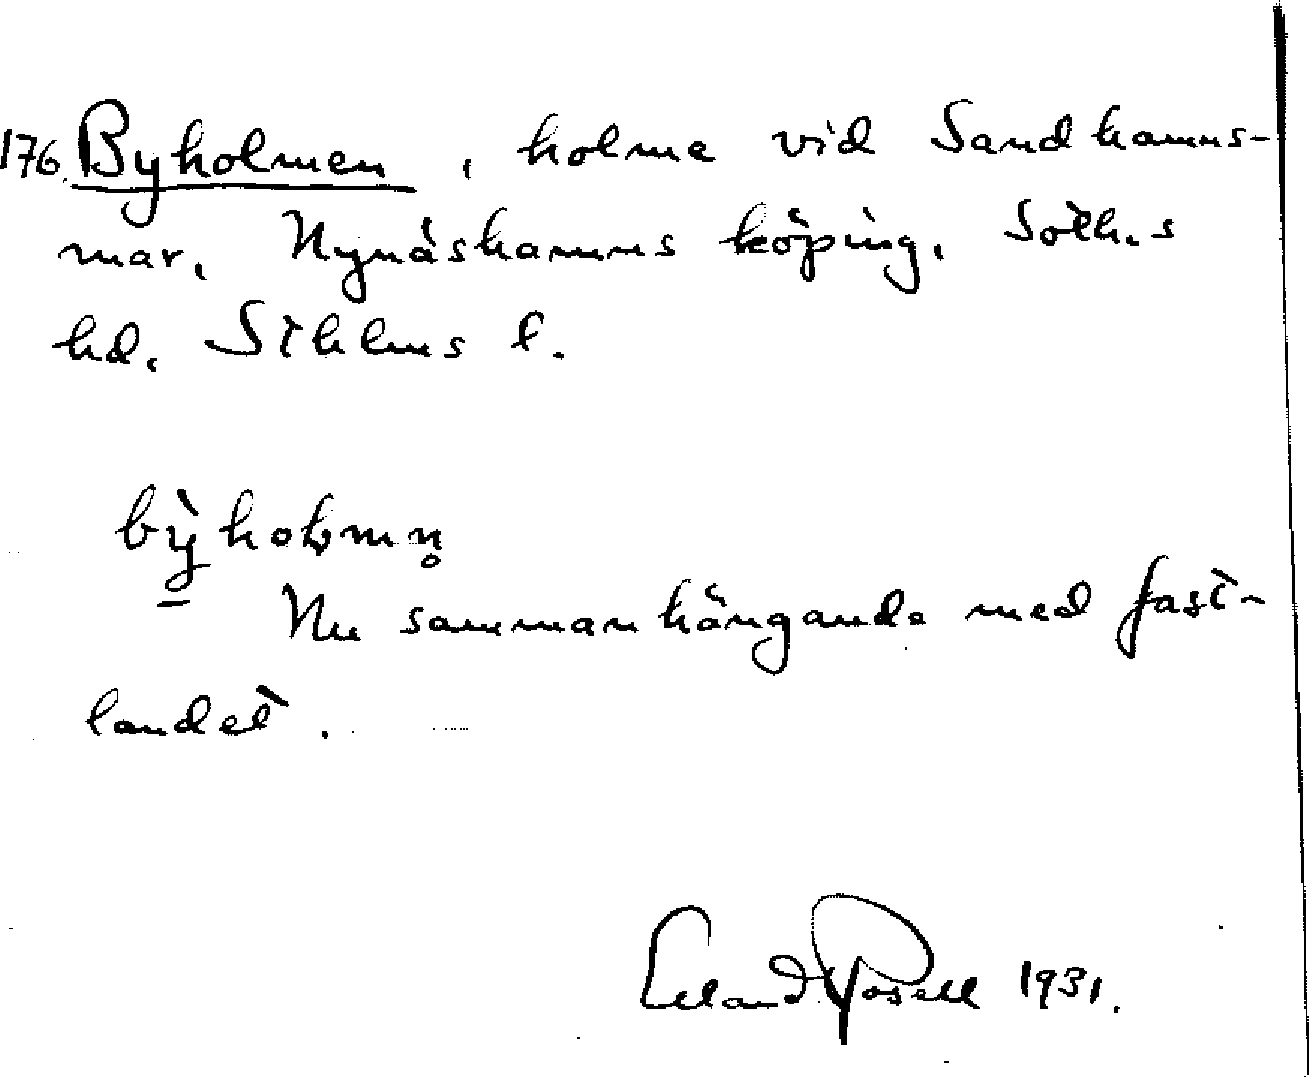 176. Byholmen, holme vid Sandhamns-
mar, Nynäshamns köping, Soth.s
hd, Sthlms l.
bỳholmn̥
Nu sammanhängande med fast-
landet.
Erland Rosell 1931.